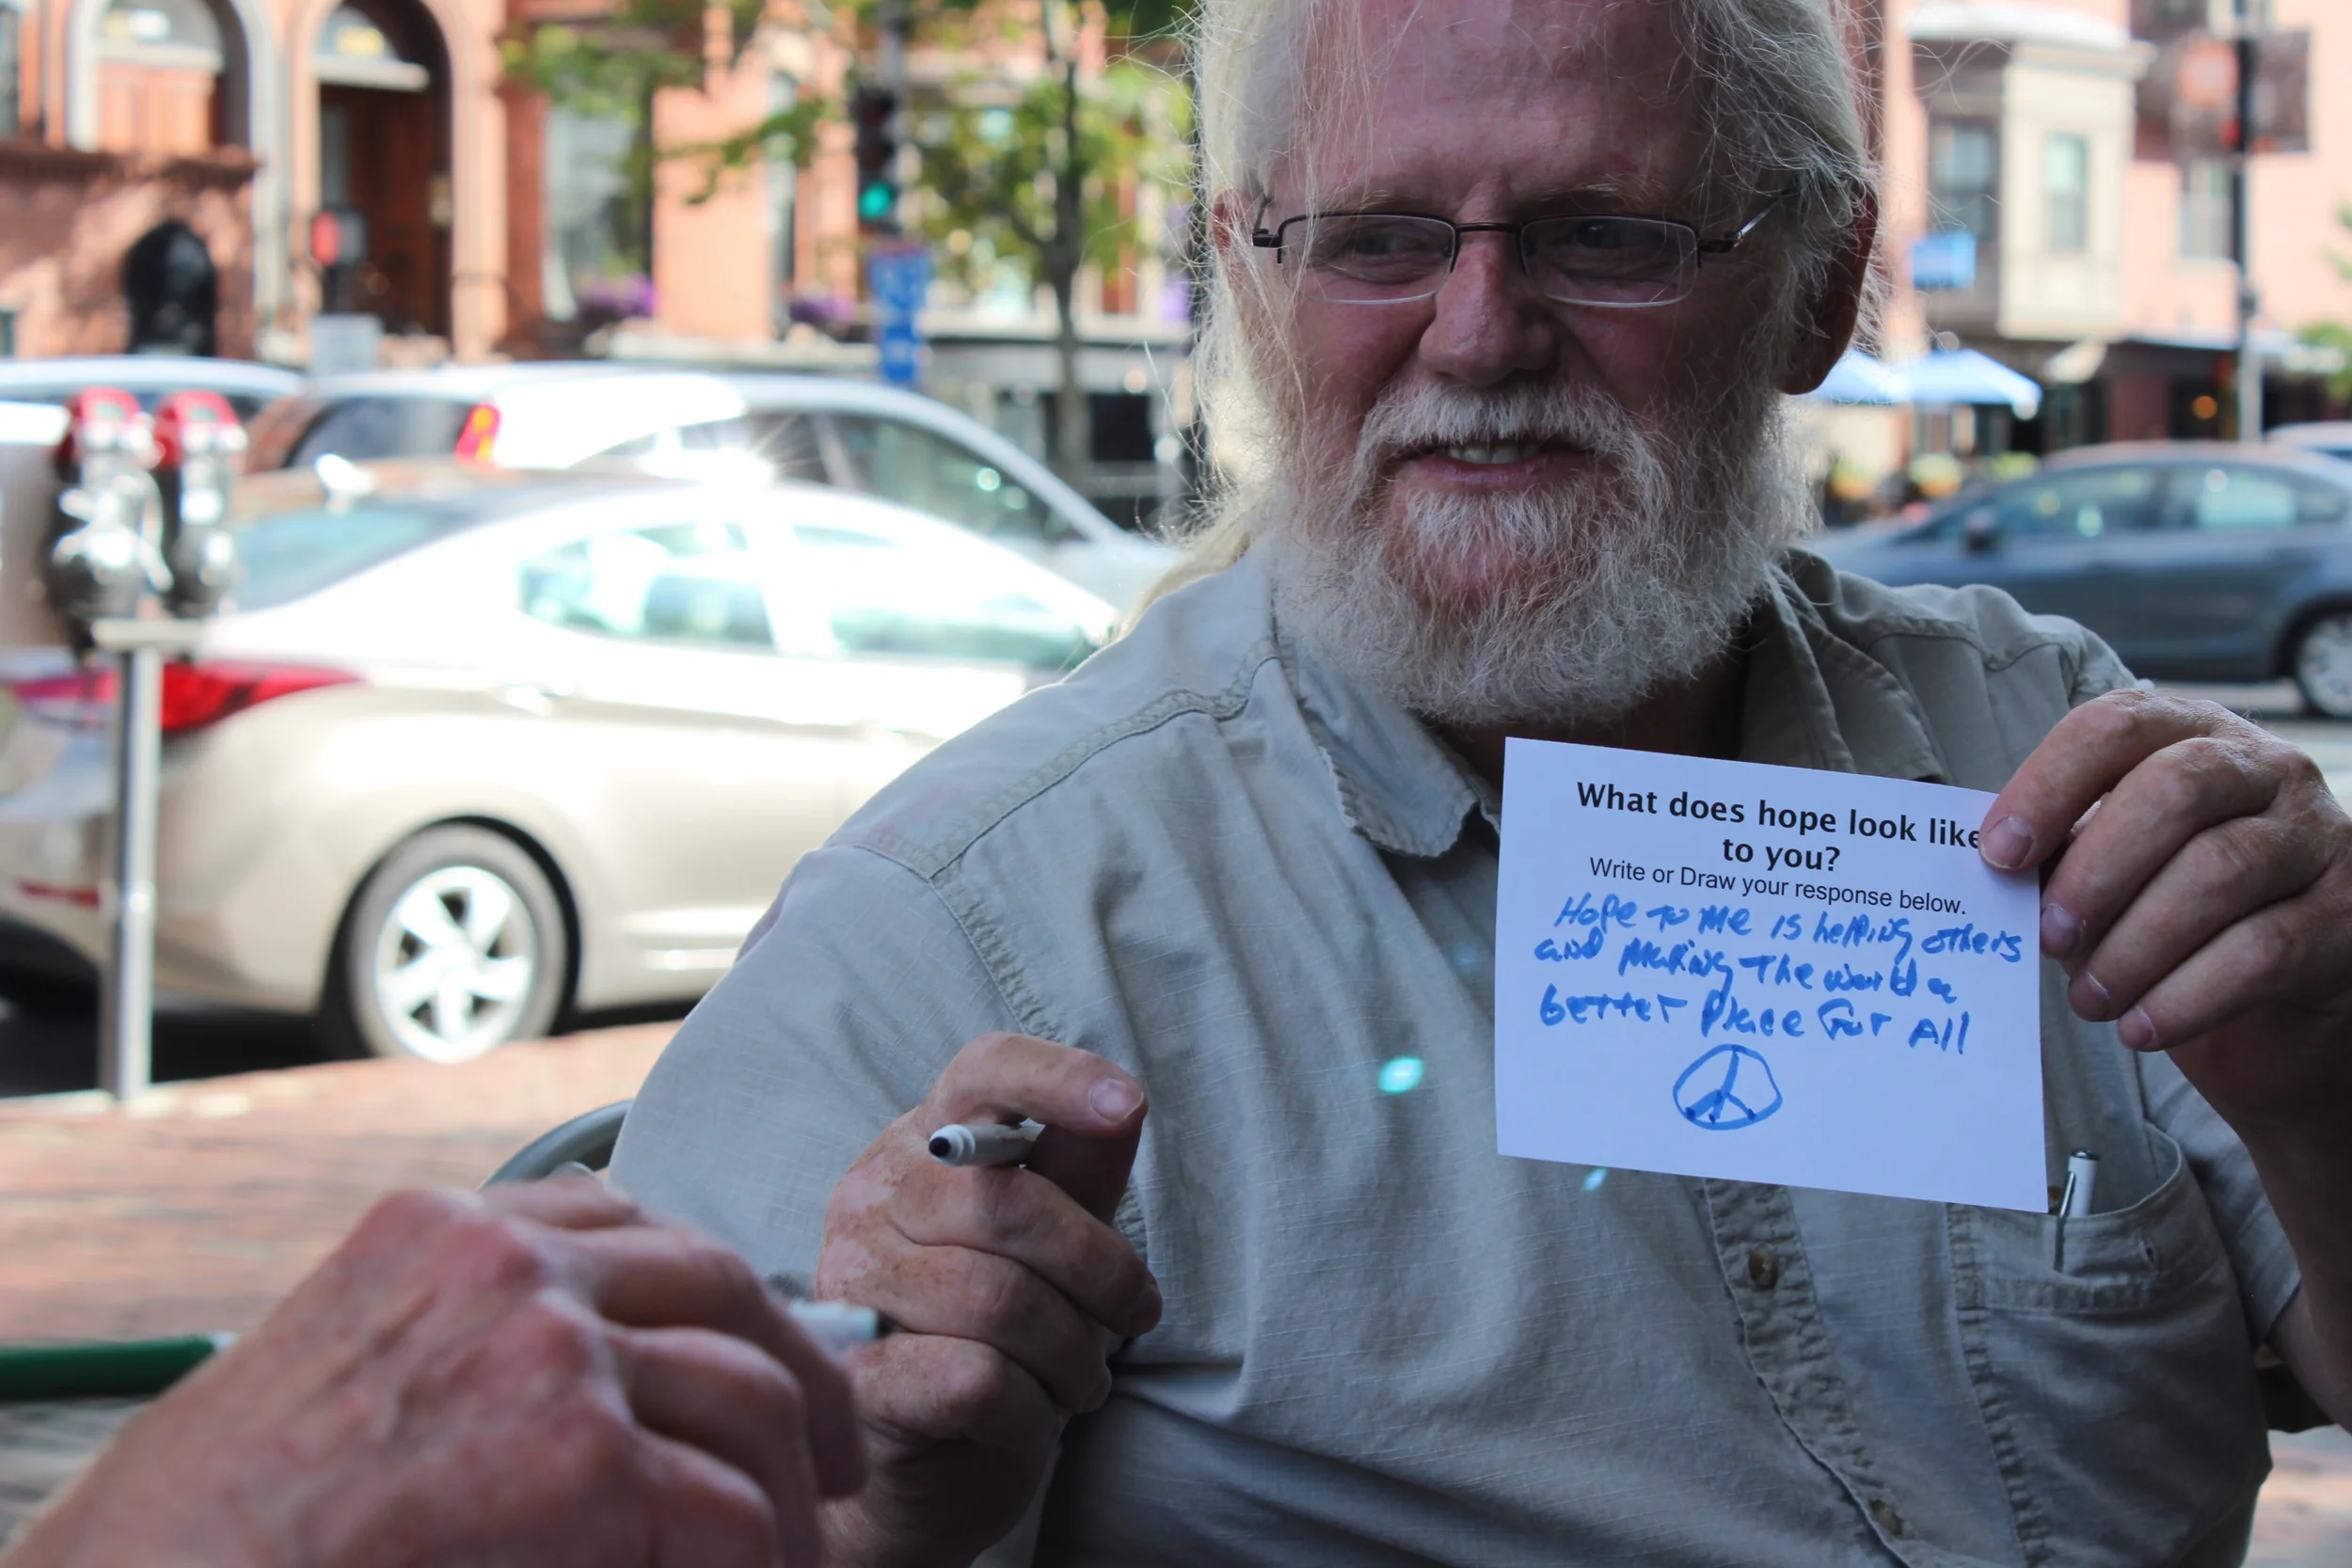 What does hope look like
to you?
Write or Draw your response below.
Hope to me is helping others
and making The world a
better Place For All